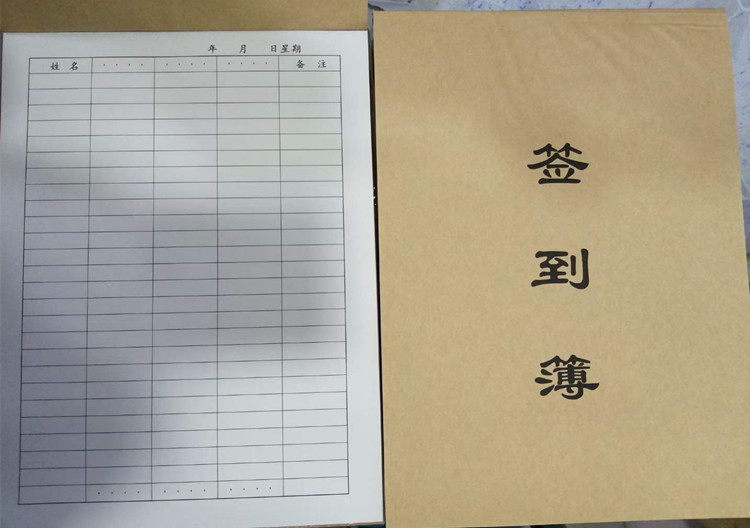 年 月 日星期
姓 名 · · · · · · · · · · · · 备 注
· · · · · · · · · · · ·
签
到
簿